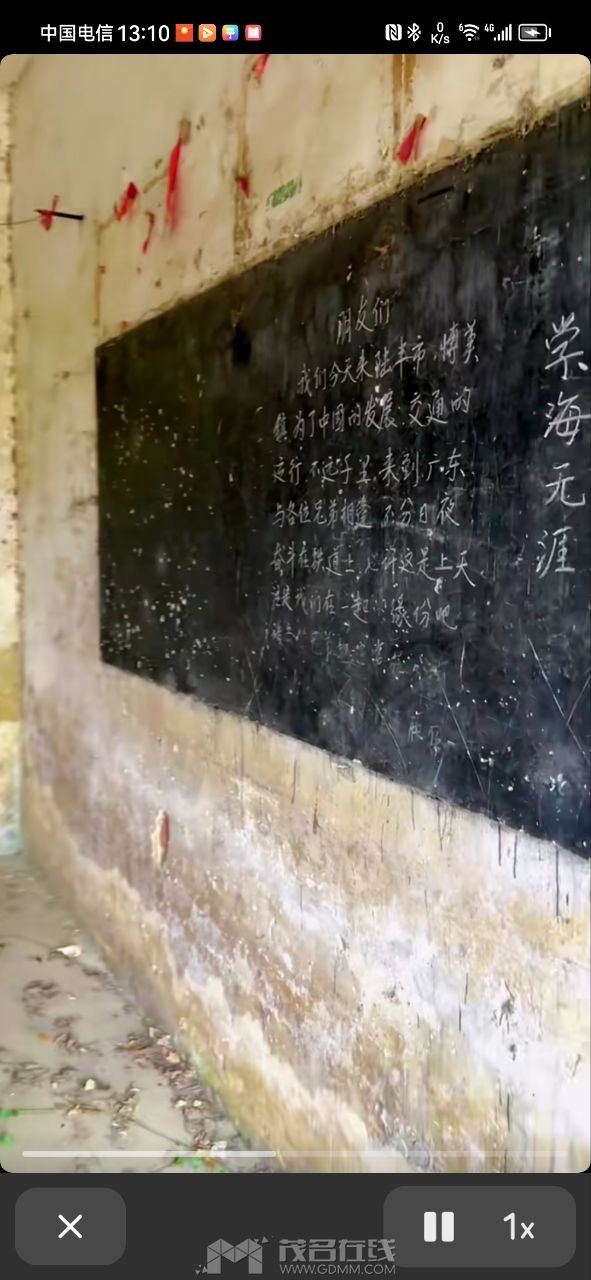 中国电信 13:10
0
K/s
6
4G
朋友们
我们今天来陆丰市，博美
镇，为了中国的发展，交通的
运行，不远千里，来到广东
与各位兄弟相逢，不分日夜
奋斗在铁道上，也许这是上天
让我们在一起的缘份吧
学海无涯
1x
茂名在线
WWW.GDMM.COM